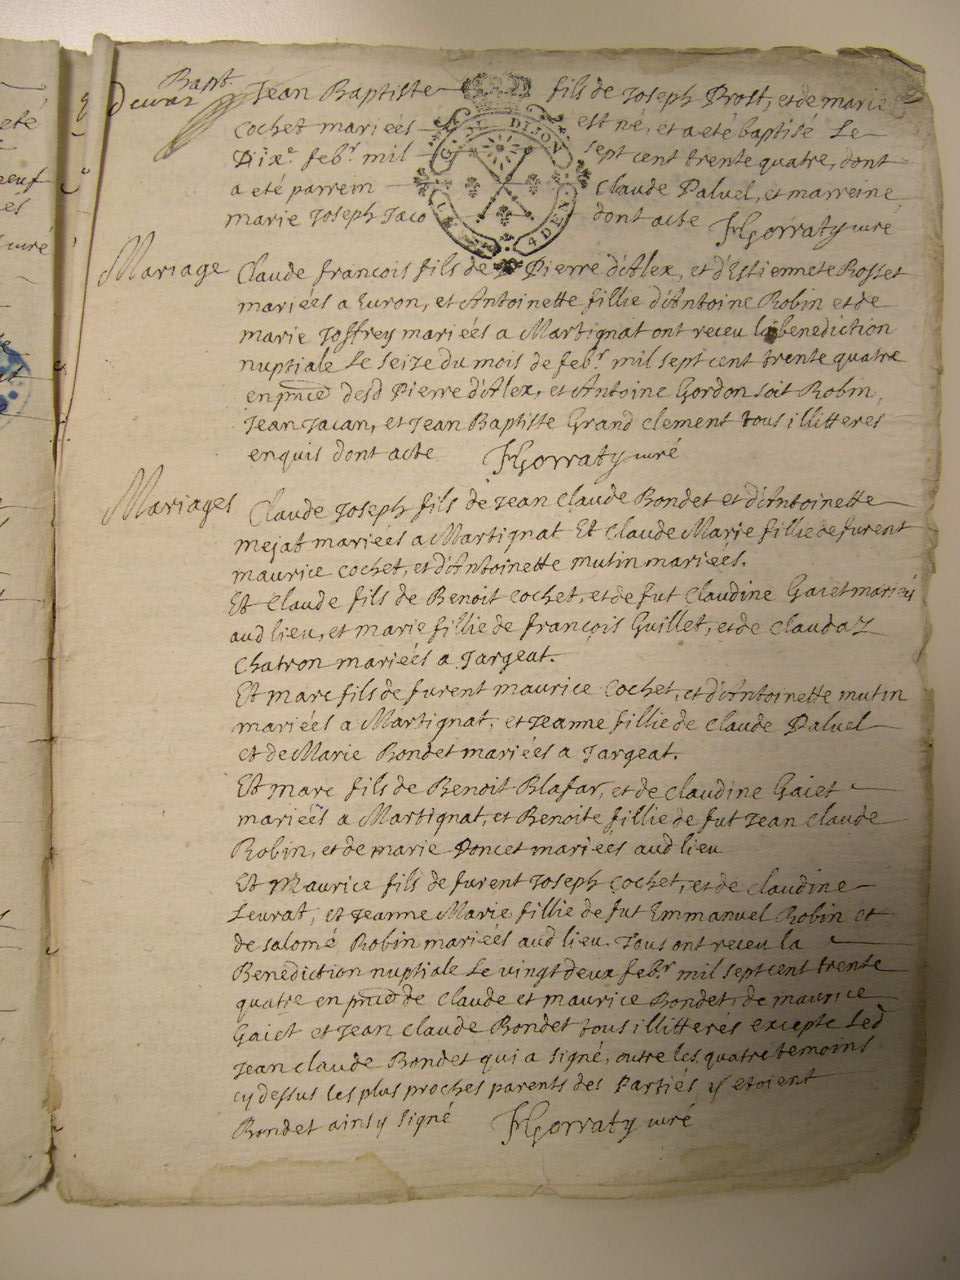 Bapt. Jean Baptiste fils de Joseph Prost, et de marie
Cochet mariéés est né, et a eté baptisé Le
Dixe. febr. mil sept cent trente quatre, dont
a eté parrein Claude Paluel, et marreine
marie Joseph Jaco dont acte Gorraty curé
GN. DIJON
4 DEN
Mariage Claude francois fils de Pierre d'Alex, et d'Estiennete Rosset
mariéés a Euron, et Antoinette fillie d'Antoine Robin et de
marie Joffrey mariéés a Martignat ont receu la benediction
nuptiale Le seize du mois de febr. mil sept cent trente quatre
en pnce desd Pierre d'Alex, et Antoine Gordon soit Robin,
Jean Jacan, et Jean Baptiste Grand clement tous illitteres
enquis dont acte Gorraty curé
Mariages Claude Joseph fils de Jean Claude Bondet et d'Antoinette
mejat mariéés a Martignat Et Claude Marie fillie de furent
maurice Cochet, et d'Antoinette mutin mariéés.
Et Claude fils de Benoit Cochet, et de fut Claudine Gaiet mariéés
aud lieu, et marie fillie de françois Guillet, et de Clauda
Chatron mariéés a Jargeat.
Et marc fils de furent maurice Cochet, et d'Antoinette mutin
mariéés a Martignat, et Jeanne fillie de Claude Paluel
et de Marie Bondet mariéés a Jargeat.
Et marc fils de Benoit Blafar, et de claudine Gaiet
mariéés a Martignat, et Benoite fillie de fut Jean Claude
Robin, et de marie Poncet mariees aud lieu
Et Maurice fils de furent Joseph Cochet, et de claudine
Levrat, et Jeanne Marie fillie de fut Emmanuel Robin et
de salomé Robin mariéés aud lieu. Tous ont receu la
Benediction nuptiale Le vingt deux febr. mil sept cent trente
quatre en pnce de Claude et maurice Bondet, de maurice
Gaiet et Jean Claude Bondet tous illitterés excepte Led
Jean claude Bondet qui a signé, outre les quatre temoins
cy dessus les plus proches parents des Partiés y etoient
Bondet ainsy signé Gorraty curé